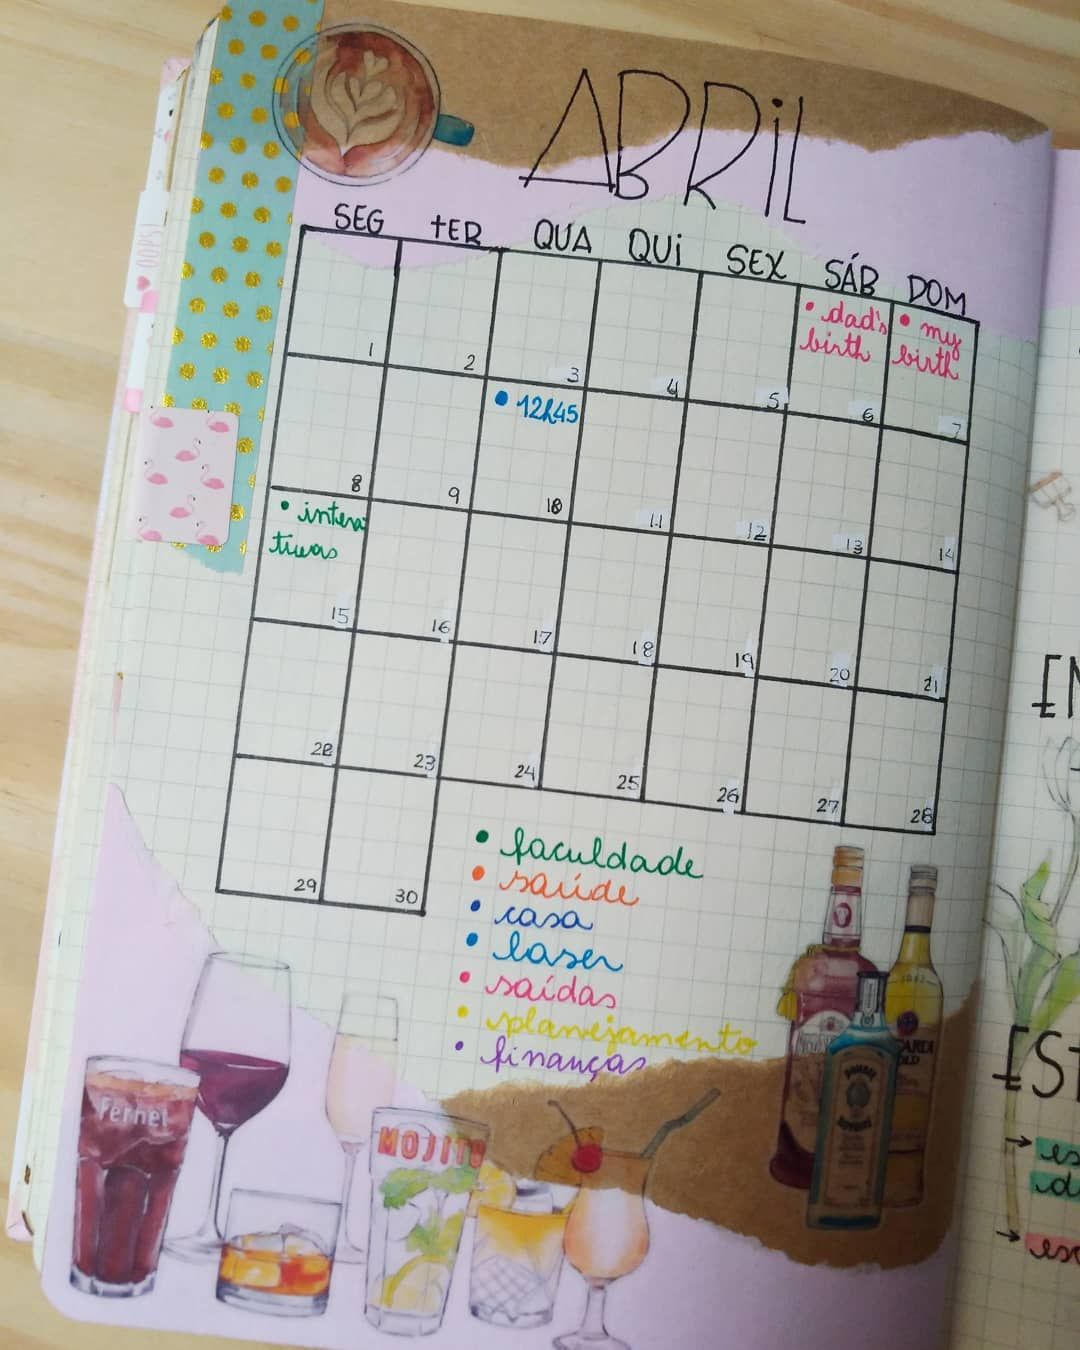 ABRiL
SEG tER QUA QUi SEX SÁB DOM
• dad's
birth
• my
birth
1 2 3 4 5 6 7
• 12h45
8 9 10 11 12 13 14
• intera
tivas
15 16 17 18 19 20 21
22 23 24 25 26 27 28
29 30
• faculdade
• saúde
• casa
• laser
• saídas
• planejamento
• finanças
Fernet
MOJITO
BOMBAY
OOPS!
EN
EST
→ es
d
→ esc